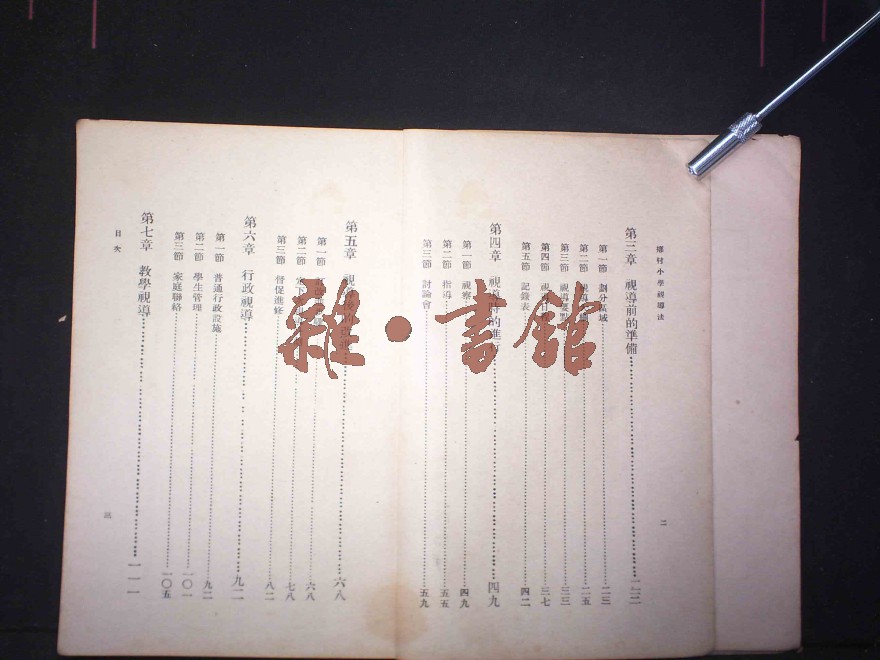 鄉村小學視導法
第三章 視導前的準備 二二
第一節 劃分區域 二三
第二節 視導 二五
第三節 視導要點 三三
第四節 視導日 三七
第五節 記錄表 四二
第四章 視導時的進行 四九
第一節 視察 四九
第二節 指導 五五
第三節 討論會 五九
二
第五章 視導後的改進 六八
第一節 六八
第二節 七八
第三節 督促進修 八二
第六章 行政視導 九二
第一節 普通行政設施 九二
第二節 學生管理 一〇一
第三節 家庭聯絡 一〇五
第七章 教學視導 一一一
目次
三
雜●書館